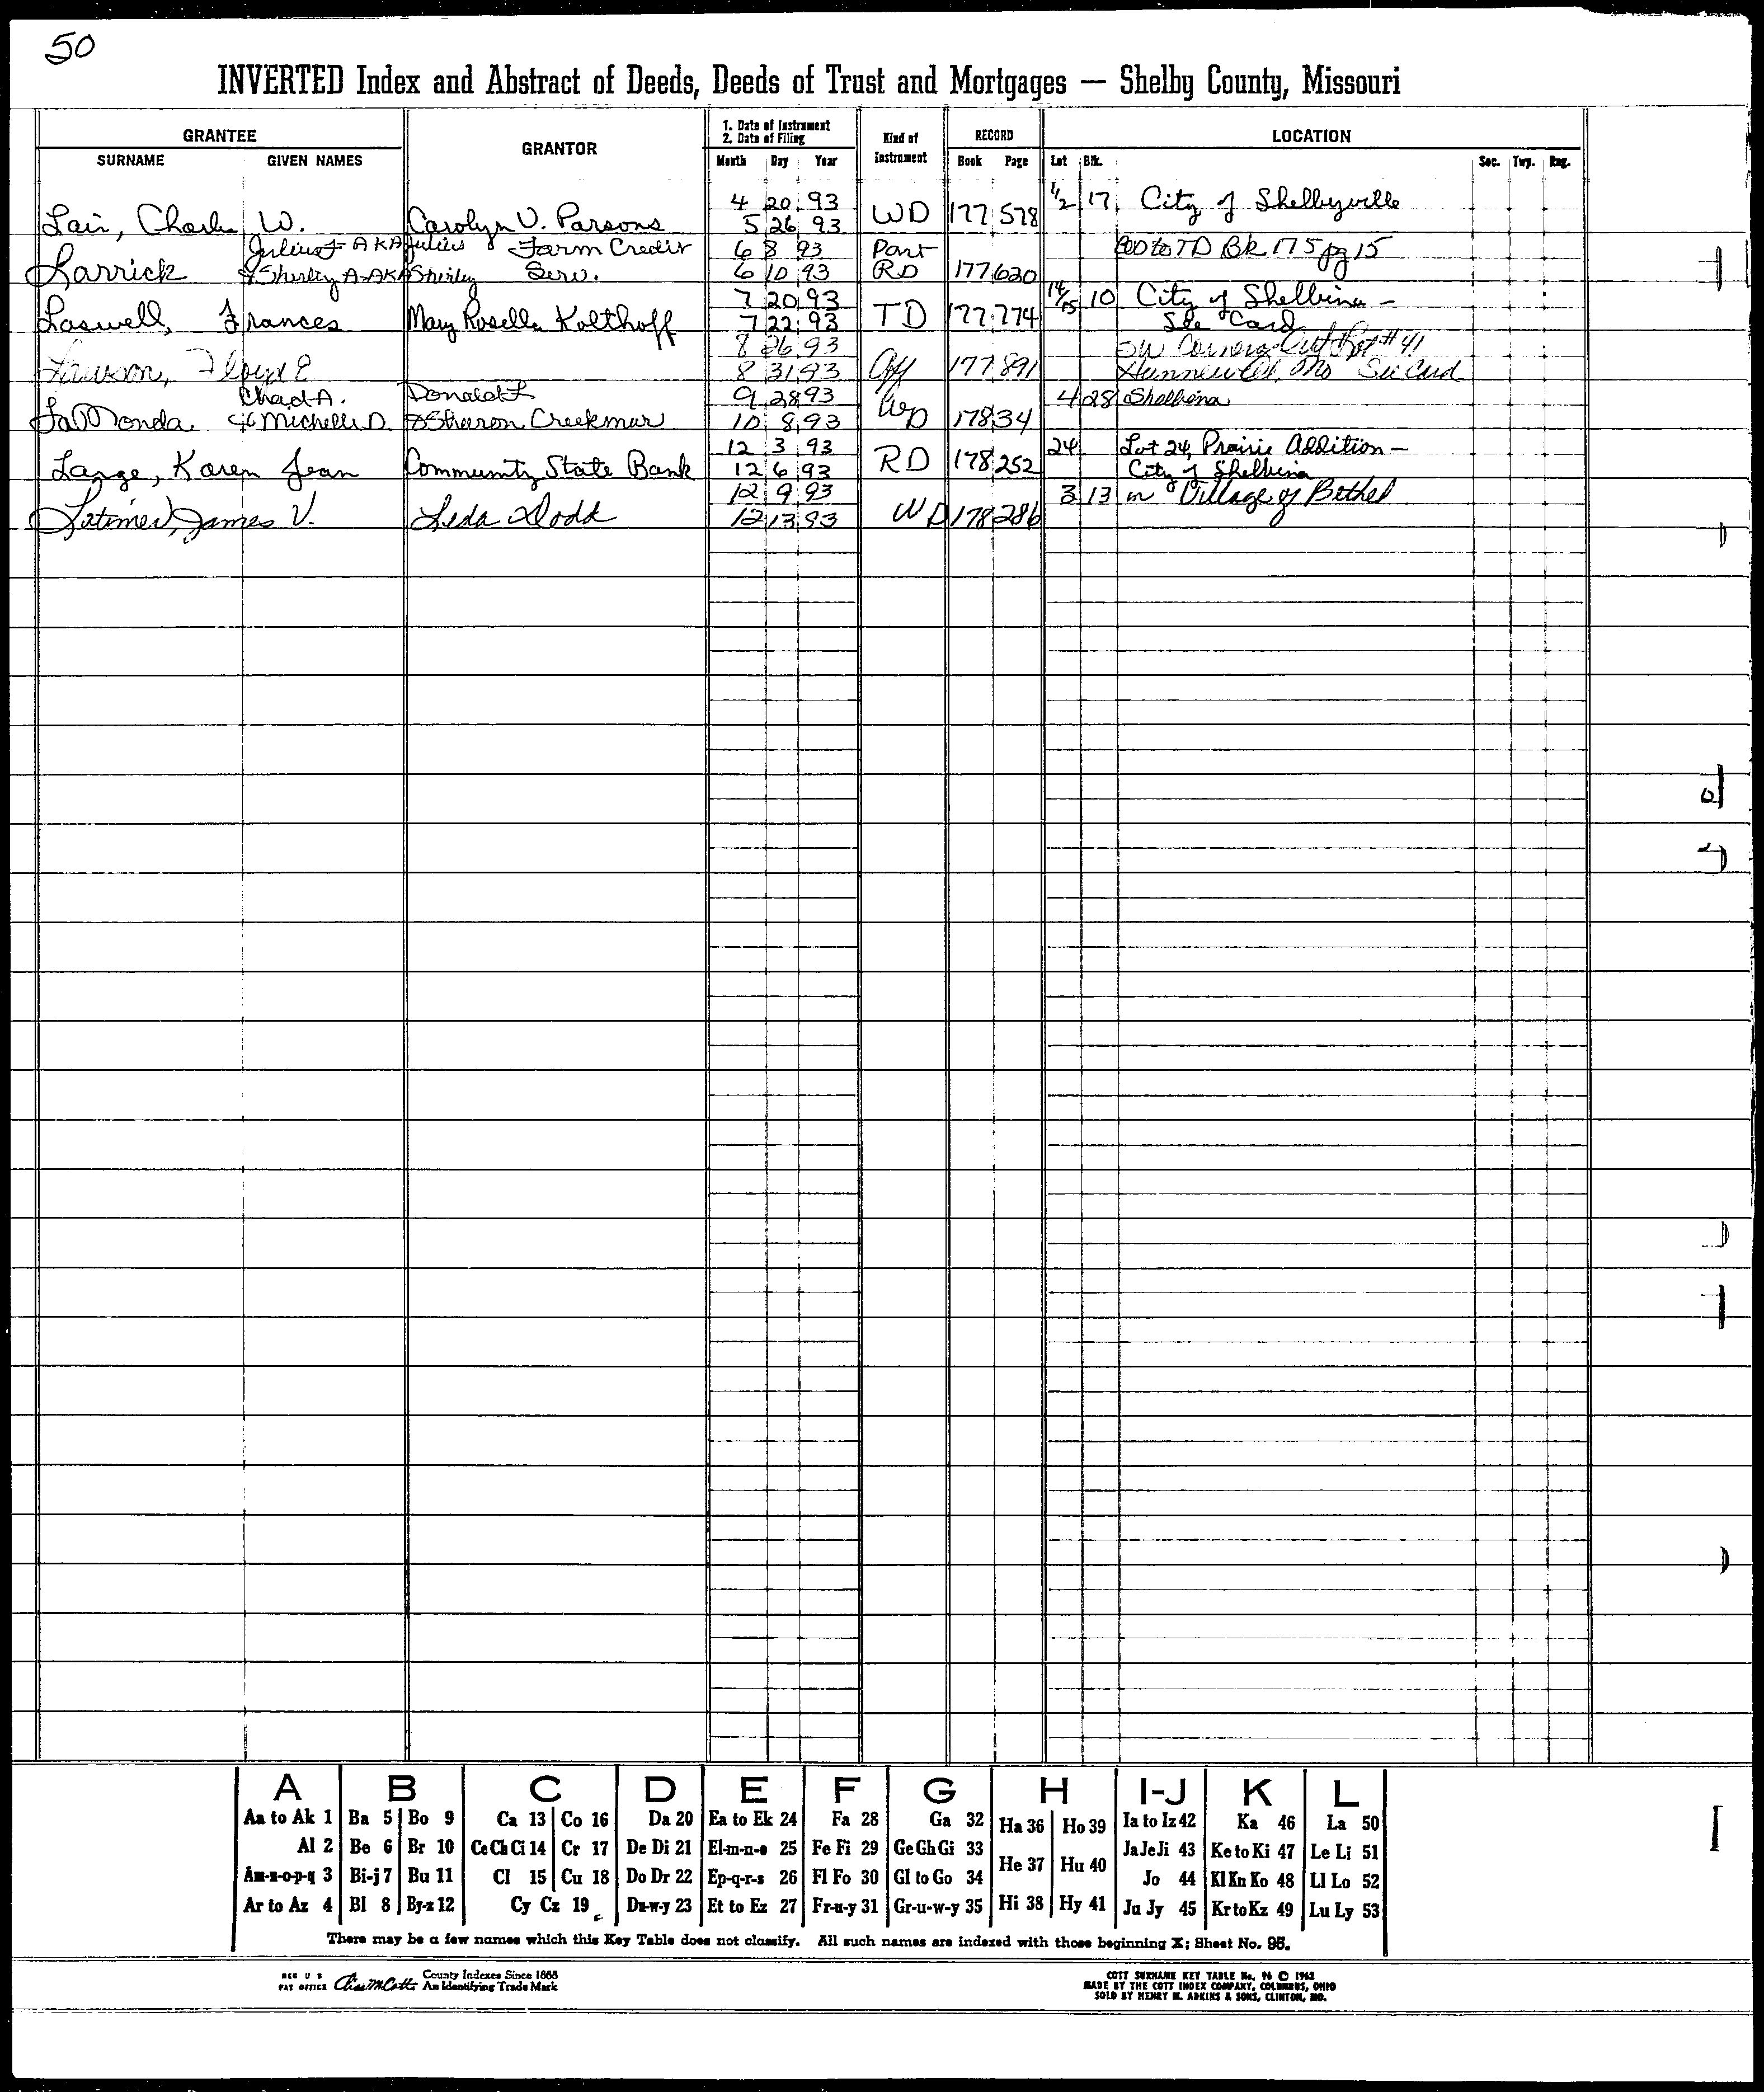 50
INVERTED Index and Abstract of Deeds, Deeds of Trust and Mortgages — Shelby County, Missouri
GRANTEE GRANTOR 1. Date of Instrument 2. Date of Filing Kind of Instrument RECORD LOCATION
SURNAME GIVEN NAMES Month Day Year Book Page Lot Blk. Sec. Twp. Rng.
4 20 93 1/2 17 City of Shelbyville
Lair, Charles W. Carolyn V. Parsons 5 26 93 WD 177 578
Julius F AKA Julius Farm Credit 6 8 93 Part to TD Bk 175 pg 15
Larrick & Shirley A. AKA Shirley Serv. 6 10 93 RD 177 620
7 20 93 14/15 10 City of Shelbina -
Laswell, Frances Mary Rosella Kolthoff 7 22 93 TD 177 774 See Card
8 26 93 SW Corner Out Lot #41
Lawson, Floyd E 8 31 93 Aff 177 891 Hunnewell, Mo See Card
Chad A. Donald F 9 28 93 4 28 Shelbina
LaMonda & Michelle D. & Sharon Creekmur 10 8 93 WD 178 34
12 3 93 24 Lot 24, Prairie Addition -
Lange, Karen Jean Community State Bank 12 6 93 RD 178 252 City of Shelbina
12 9 93 3 13 in Village of Bethel
Latimer, James V. Leda Dodd 12 13 93 WD 178 286
A B C D E F G H I-J K L
Aa to Ak 1 Ba 5 Bo 9 Ca 13 Co 16 Da 20 Ea to Ek 24 Fa 28 Ga 32 Ha 36 Ho 39 Ia to Iz 42 Ka 46 La 50
Al 2 Be 6 Br 10 Ce Ch Ci 14 Cr 17 De Di 21 El-m-n-o 25 Fe Fi 29 Ge Gh Gi 33 He 37 Hu 40 Ja Je Ji 43 Ke to Ki 47 Le Li 51
Am-n-o-p-q 3 Bi-j 7 Bu 11 Cl 15 Cu 18 Do Dr 22 Ep-q-r-s 26 Fl Fo 30 Gl to Go 34 Jo 44 Kl Kn Ko 48 Ll Lo 52
Ar to Az 4 Bl 8 By-z 12 Cy Cz 19 Du-w-y 23 Et to Ez 27 Fr-u-y 31 Gr-u-w-y 35 Hi 38 Hy 41 Ju Jy 45 Kr to Kz 49 Lu Ly 53
There may be a few names which this Key Table does not classify. All such names are indexed with those beginning X; Sheet No. 95.
REG U S PAT OFFICE County Indexes Since 1888 An Identifying Trade Mark
COTT SURNAME KEY TABLE No. 96 © 1962
MADE BY THE COTT INDEX COMPANY, COLUMBUS, OHIO
SOLD BY HENRY M. ADKINS & SONS, CLINTON, MO.